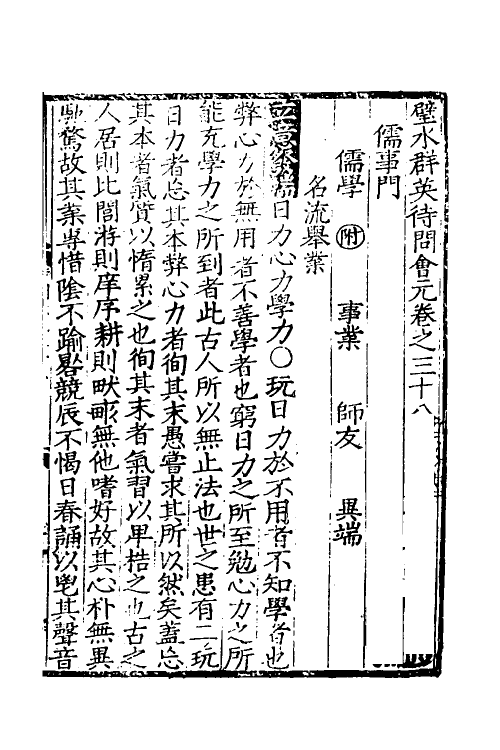 璧水群英待問會元卷之三十八
儒事門
儒學 附 事業 師友 異端
名流舉業
立意發端日力心力學力○玩日力於不用者不知學者也
弊心力於無用者不善學者也窮日力之所至勉心力之所
能充學力之所到者此古人所以無止法也世之患有二玩
日力者忘其本弊心力者徇其末愚嘗求其所以然矣蓋忘
其本者氣質以惰累之也徇其末者氣習以卑梏之也古之
人居則比閭游則庠序耕則畎畝無他嗜好故其心朴無異
馳騖故其業專惜陰不踰晷競辰不愒日春誦以鬯其聲音